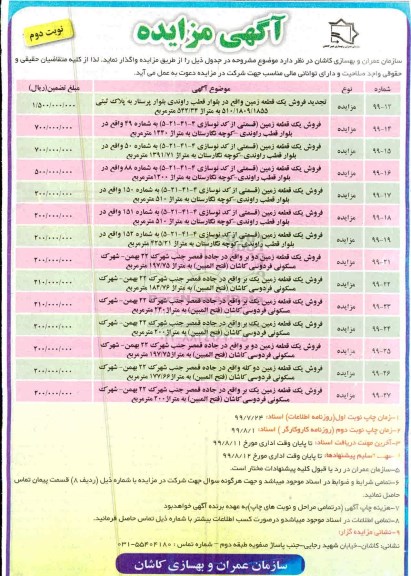 نوبت دوم
آگهی مزایده
سازمان عمران و بهسازی کاشان در نظر دارد موضوع مشروحه در جدول ذیل را از طریق مزایده واگذار نماید. لذا از کلیه متقاضیان حقیقی و
حقوقی واجد صلاحیت و دارای توانائی مالی مناسب جهت شرکت در مزایده دعوت به عمل می آید.
شماره نوع موضوع آگهی مبلغ تضمین(ریال)
۹۹-۱۲ مزایده تجدید فروش یک قطعه زمین واقع در بلوار قطب راوندی بلوار پرستار به پلاک ثبتی ۵۱۰/۱۸۰۹/۱۸۵۵ به متراژ ۵۴۲/۳۴ مترمربع ۱/۵۰۰/۰۰۰/۰۰۰
۹۹-۱۴ مزایده فروش یک قطعه زمین (قسمتی از کد نوسازی ۴-۴۱-۲۱-۵) به شماره ۴۹ واقع در بلوار قطب راوندی -کوچه نگارستان به متراژ ۱۴۴۰ مترمربع ۷۰۰/۰۰۰/۰۰۰
۹۹-۱۵ مزایده فروش یک قطعه زمین (قسمتی از کد نوسازی ۴-۴۱-۲۱-۵) به شماره ۵۰ واقع در بلوار قطب راوندی -کوچه نگارستان به متراژ ۱۳۹۱/۷۱ مترمربع ۷۰۰/۰۰۰/۰۰۰
۹۹-۱۶ مزایده فروش یک قطعه زمین (قسمتی از کد نوسازی ۴-۴۱-۲۱-۵) به شماره ۸۸ واقع در بلوار قطب راوندی -کوچه نگارستان به متراژ ۵۱۰ مترمربع ۵۰۰/۰۰۰/۰۰۰
۹۹-۱۷ مزایده فروش یک قطعه زمین (قسمتی از کد نوسازی ۴-۴۱-۲۱-۵) به شماره ۱۵۰ واقع در بلوار قطب راوندی -کوچه نگارستان به متراژ ۲۱۰ مترمربع ۲۰۰/۰۰۰/۰۰۰
۹۹-۱۸ مزایده فروش یک قطعه زمین (قسمتی از کد نوسازی ۴-۴۱-۲۱-۵) به شماره ۱۵۱ واقع در بلوار قطب راوندی -کوچه نگارستان به متراژ ۲۱۰ مترمربع ۲۰۰/۰۰۰/۰۰۰
۹۹-۱۹ مزایده فروش یک قطعه زمین (قسمتی از کد نوسازی ۴-۴۱-۲۱-۵) به شماره ۱۵۲ واقع در بلوار قطب راوندی -کوچه نگارستان به متراژ ۲۲۵/۲۱ مترمربع ۲۰۰/۰۰۰/۰۰۰
۹۹-۲۱ مزایده فروش یک قطعه زمین دو بر واقع در جاده قمصر جنب شهرک ۲۲ بهمن- شهرک مسکونی فردوسی کاشان (فتح المبین) به متراژ ۱۹۷/۷۵ مترمربع ۲۰۰/۰۰۰/۰۰۰
۹۹-۲۲ مزایده فروش یک قطعه زمین یک بر واقع در جاده قمصر جنب شهرک ۲۲ بهمن- شهرک مسکونی فردوسی کاشان (فتح المبین) به متراژ ۱۸۴/۷۶ مترمربع ۲۱۰/۰۰۰/۰۰۰
۹۹-۲۳ مزایده فروش یک قطعه زمین یک بر واقع در جاده قمصر جنب شهرک ۲۲ بهمن- شهرک مسکونی فردوسی کاشان (فتح المبین) به متراژ ۲۲۰ مترمربع ۲۱۰/۰۰۰/۰۰۰
۹۹-۲۴ مزایده فروش یک قطعه زمین یک بر واقع در جاده قمصر جنب شهرک ۲۲ بهمن- شهرک مسکونی فردوسی کاشان (فتح المبین) به متراژ ۲۰۰ مترمربع ۲۰۰/۰۰۰/۰۰۰
۹۹-۲۵ مزایده فروش یک قطعه زمین دو بر واقع در جاده قمصر جنب شهرک ۲۲ بهمن- شهرک مسکونی فردوسی کاشان (فتح المبین) به متراژ ۱۹۷/۷۵ مترمربع ۲۰۰/۰۰۰/۰۰۰
۹۹-۲۶ مزایده فروش یک قطعه زمین دو کله واقع در جاده قمصر جنب شهرک ۲۲ بهمن- شهرک مسکونی فردوسی کاشان (فتح المبین) به متراژ ۱۷۷/۶۶ مترمربع ۲۰۰/۰۰۰/۰۰۰
۹۹-۲۷ مزایده فروش یک قطعه زمین یک بر واقع در جاده قمصر جنب شهرک ۲۲ بهمن- شهرک مسکونی فردوسی کاشان (فتح المبین) به متراژ ۲۰۰ مترمربع ۲۰۰/۰۰۰/۰۰۰
۱-زمان چاپ نوبت اول(روزنامه اطلاعات) اسناد: ۹۹/۷/۲۴
۲-زمان چاپ نوبت دوم (روزنامه کاروکارگر ) اسناد: ۹۹/۸/۱
۳-آخرین مهلت دریافت اسناد: تا پایان وقت اداری مورخ ۹۹/۸/۱۱
تسلیم پیشنهادها: تا پایان وقت اداری مورخ ۹۹/۸/۱۲
۵-سازمان عمران در رد یا قبول کلیه پیشنهادات مختار است.
۶-تمامی شرایط و ضوابط در اسناد موجود میباشد و جهت هرگونه سوال جهت شرکت در مزایده با شماره ذیل (ردیف ۸) قسمت پیمان تماس
حاصل نمائید.
۷-هزینه چاپ آگهی (درتمامی مراحل و نوبت های چاپ)به عهده برنده آگهی خواهدبود
۸-تمامی اطلاعات در اسناد موجود میباشدو درصورت کسب اطلاعات بیشتر با شماره ذیل تماس حاصل فرمائید.
۹-نشانی مزایده گزار:
نشانی: کاشان-خیابان شهید رجایی-جنب پاساژ صفویه طبقه دوم - شماره تماس : ۵۵۴۰۴۱۸۰-۰۳۱
سازمان عمران و بهسازی کاشان